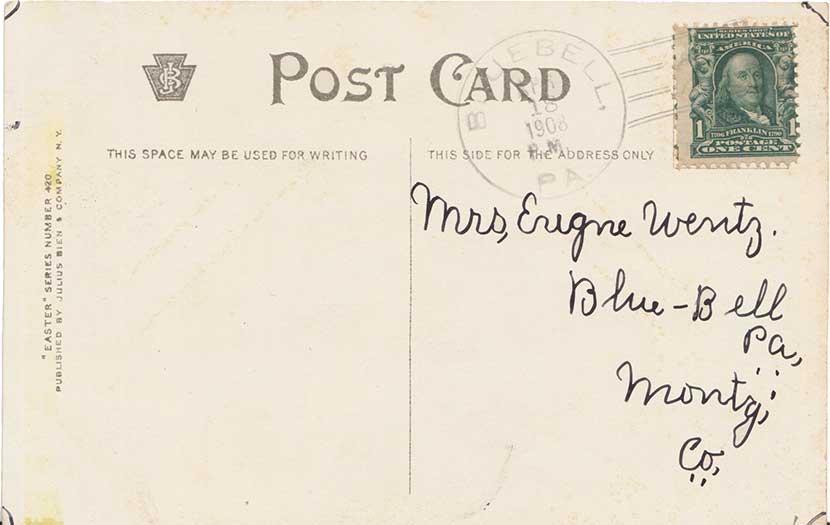 POST CARD
BLUEBELL,
18
1908
P.M.
PA.
SERIES 1902
UNITED STATES OF
AMERICA
1 1706 FRANKLIN 1790 1
POSTAGE
ONE CENT
THIS SPACE MAY BE USED FOR WRITING
THIS SIDE FOR THE ADDRESS ONLY
Mrs, Eugne Wentz.
Blue-Bell
Pa,
Montg,
Co,
"EASTER" SERIES NUMBER 420
PUBLISHED BY JULIUS BIEN & COMPANY N.Y.